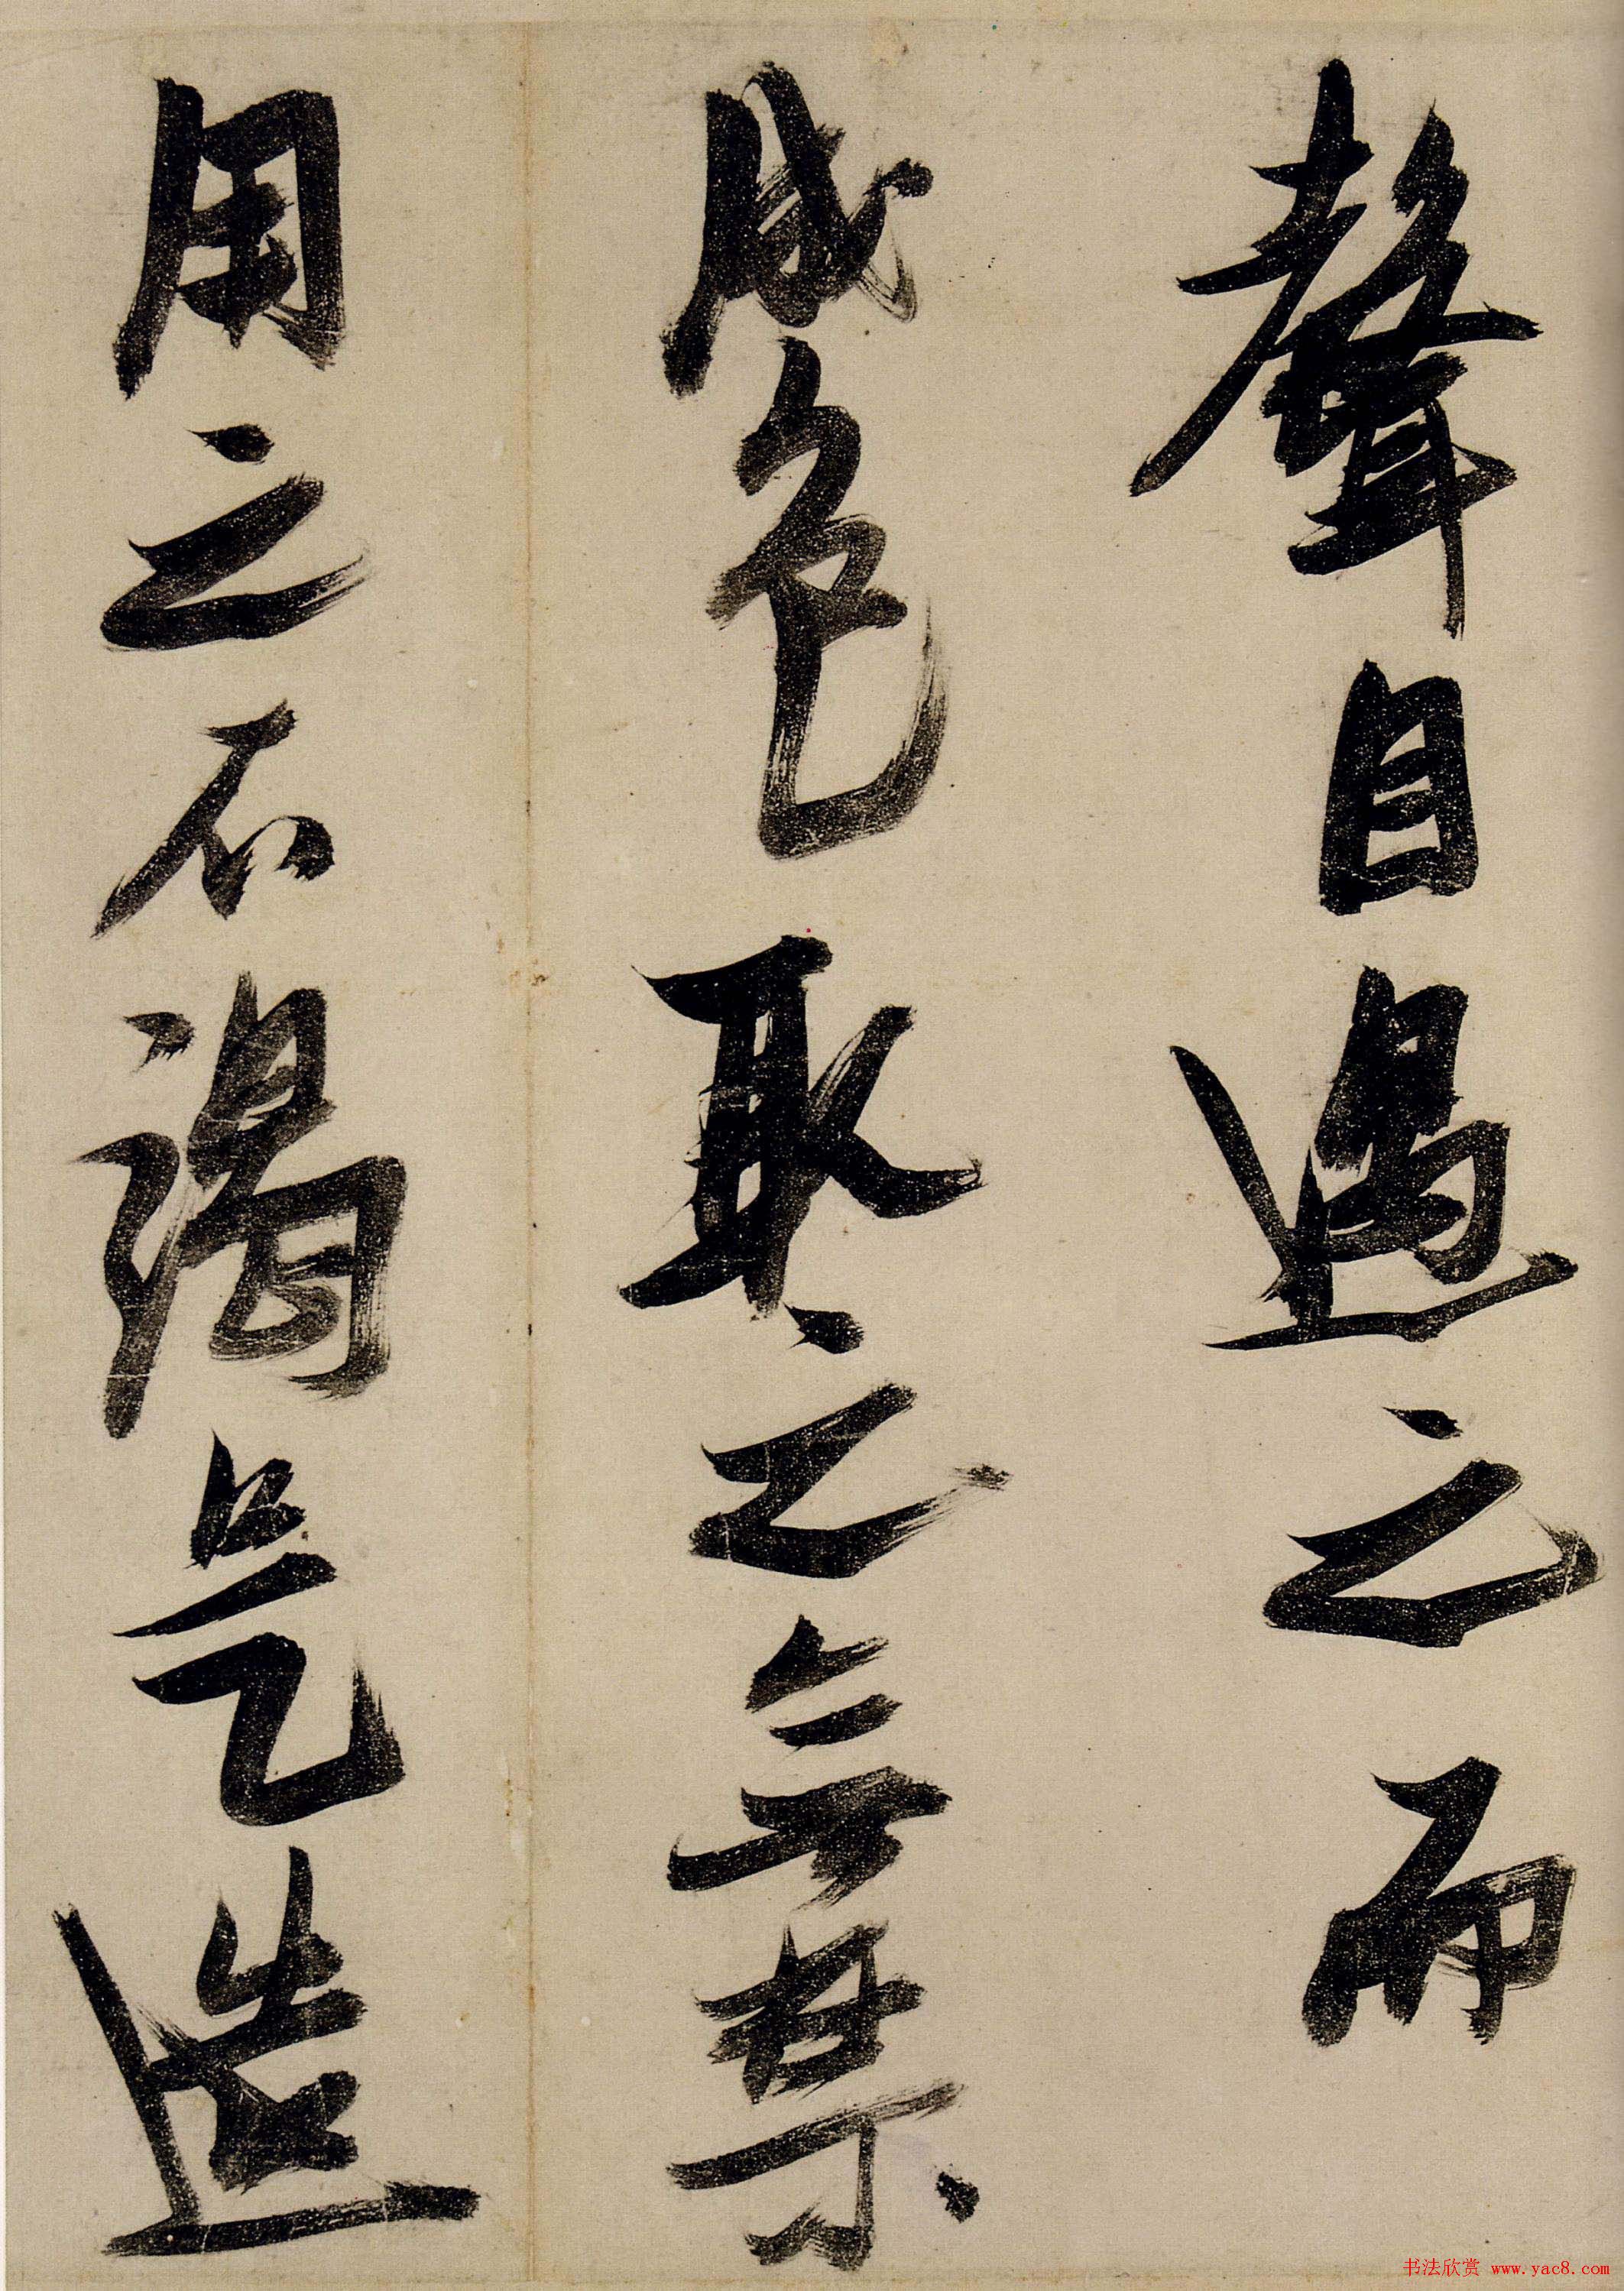 聲目遇之而
成色取之無禁
用之不竭是造
书法欣赏 www.yac8.com